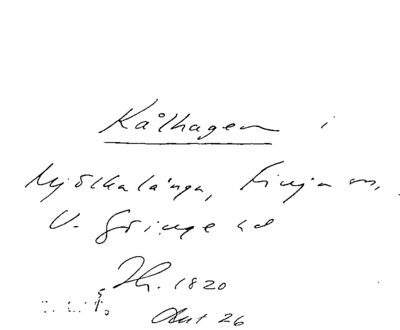 Kålhagen i
Mjölkalånga, Finja sn,
V. Göinge hd
Th. 1820
Akt 26